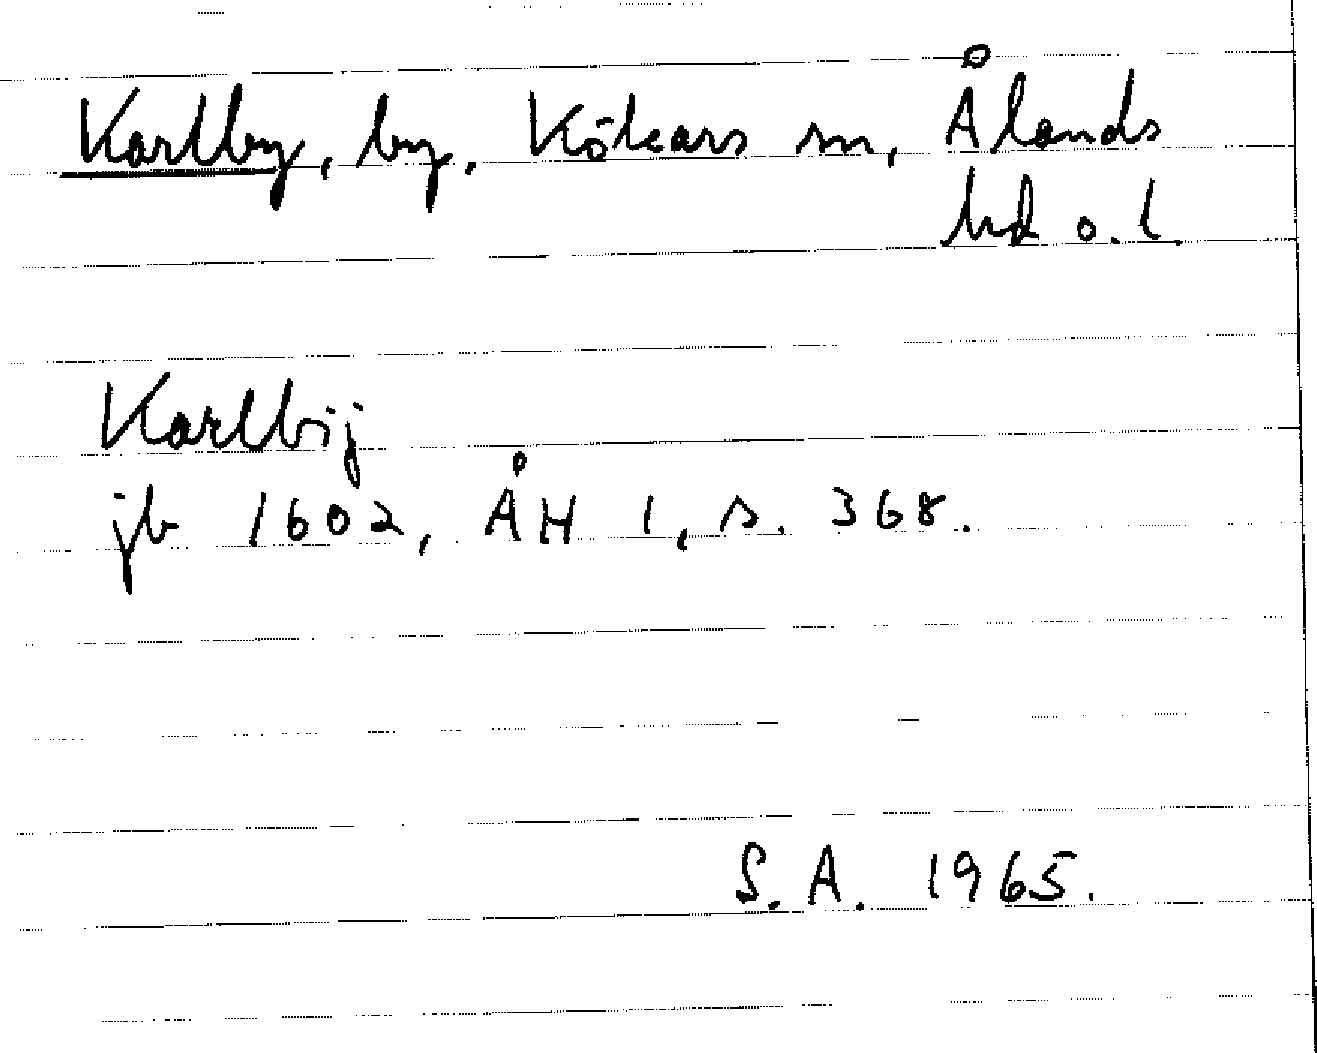 Karlby, by, Kökars sn, Ålands
hd o. l.
Karlbij
jb 1602, ÅH 1, s. 368.
S. A. 1965.